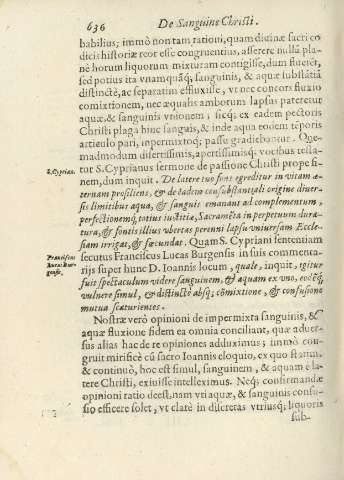 636 De Sanguine Christi.
babilius; immò non tam rationi, quam diuinæ sacri co
dicis historiæ reor esse congruentius, asserere nullã pla-
nè horum liquorum mixturam contigisse, dum fluerẽt,
sed potius ita vnamquãq; sanguinis, & aquæ substãtiã
distinctè, ac separatim effluxisse, vt nec concors fluxio
comixtionem, nec æqualis amborum lapsus pateretur
aquæ, & sanguinis vnionem; sicq; ex eadem pectoris
Christi plaga hinc sanguis, & inde aqua eodem tẽporis
articulo pari, inpermixtoq; passu gradiebantur. Que-
madmodum disertissimis, apertissimisq; vocibus testa-
tur S. Cyprianus sermone de passione Christi prope fi-
S. Cyprian.
nem, dum inquit. De latere tuo fons egreditur in vitam æ-
ternam prosiliens, & de eadem consubstantiali origine diuer-
sis limitibus aqua, & sanguis emanant ad complementum,
perfectionemq; totius iustitiæ, Sacramẽta in perpetuum dura-
tura, & fontis illius vbertas perenni lapsu vniuersam Eccle-
siam irrigat, & fœcundat. Quam S. Cypriani sententiam
Franciscus
Lucas Bur-
gensis.
secutus Franciscus Lucas Burgensis in suis commenta-
rijs super hunc D. Ioannis locum, quale, inquit, igitur
fuit spectaculum videre sanguinem, & aquam ex vno, eodẽq;
vulnere simul, & distinctè absq; cõmixtione, & confusione
mutua scaturientes.
Nostræ verò opinioni de impermixta sanguinis, &
aquæ fluxione fidem ea omnia conciliant, quæ aduer-
sus alias hac de re opiniones adduximus; immò con-
gruit mirificè cũ sacro Ioannis eloquio, ex quo statim,
& continuò, hoc est simul, sanguinem, & aquam è la-
tere Christi, exiuisse intelleximus. Neq; confirmandæ
opinioni ratio deest, nam vti aquæ, & sanguinis confu-
sio efficere solet, vt clarè in discretas vtriusq; liquoris
sub-